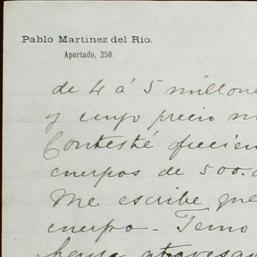 Pablo Martinez del Rio.
Apartado, 250.
de 4 á 5 millone
y cuyo precio n
Contesté ofrecien
cuerpos de 500.0
Me escribe que
cuerpo. Temo